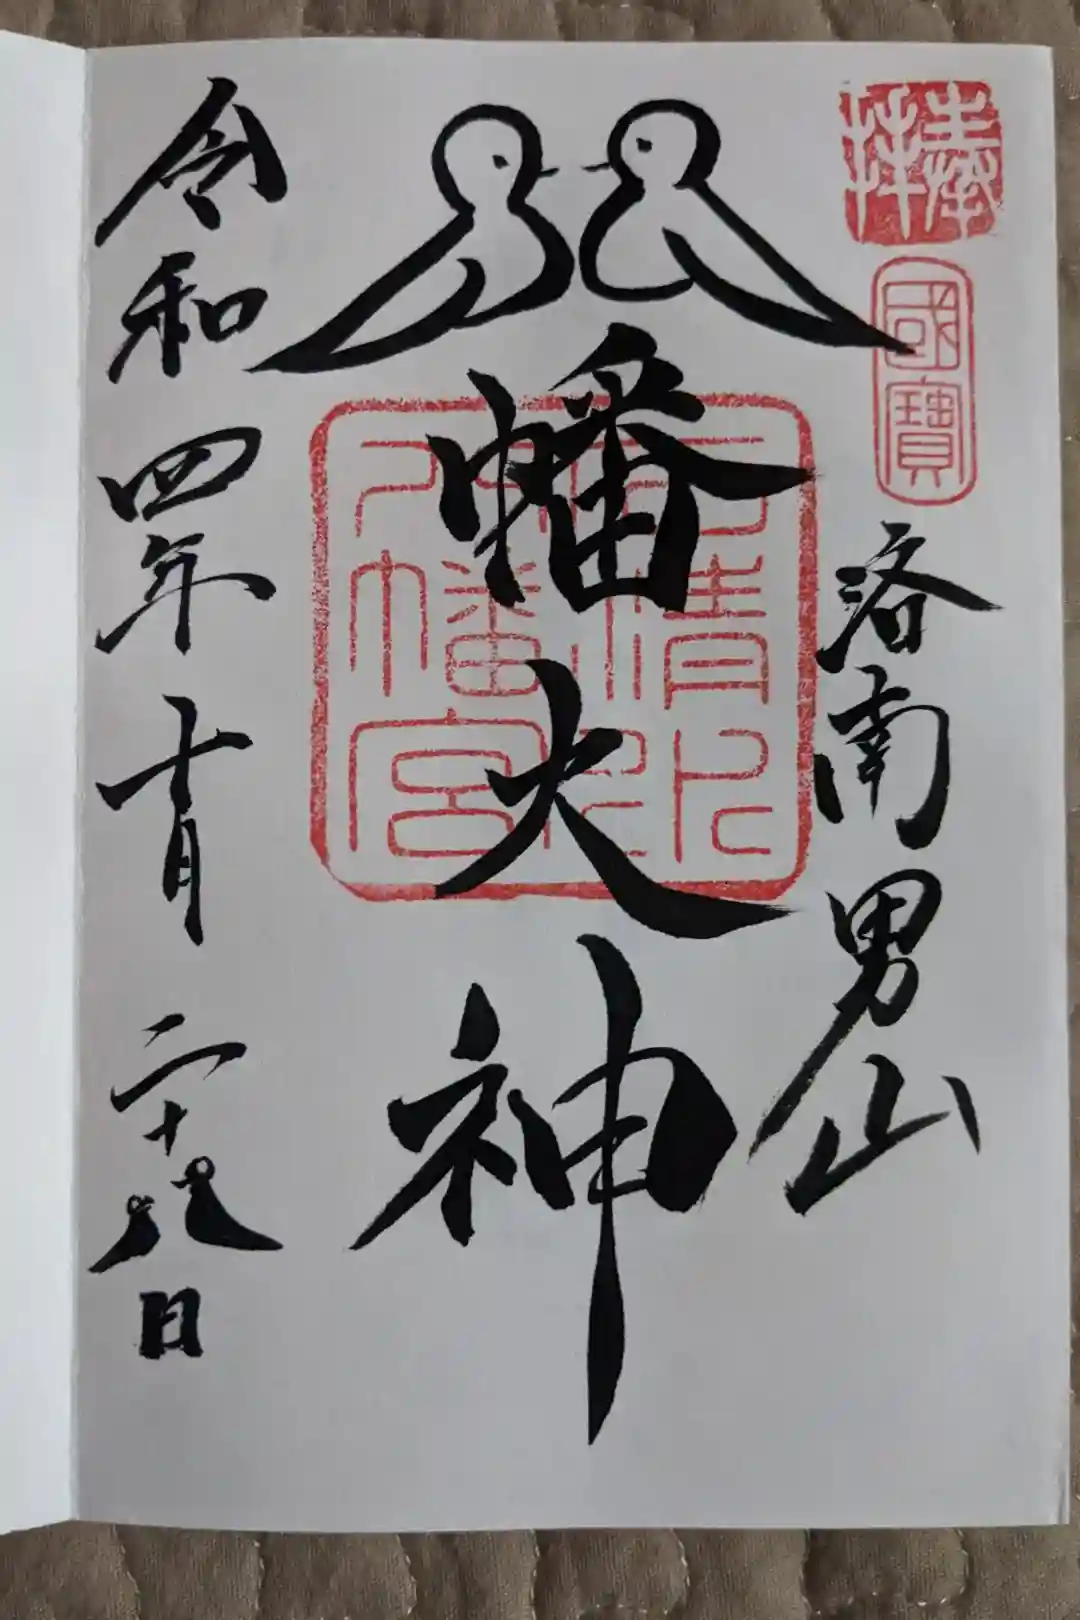 奉拝
國寶
洛南男山
八幡大神
石清水八幡宮
令和四年十月二十八日